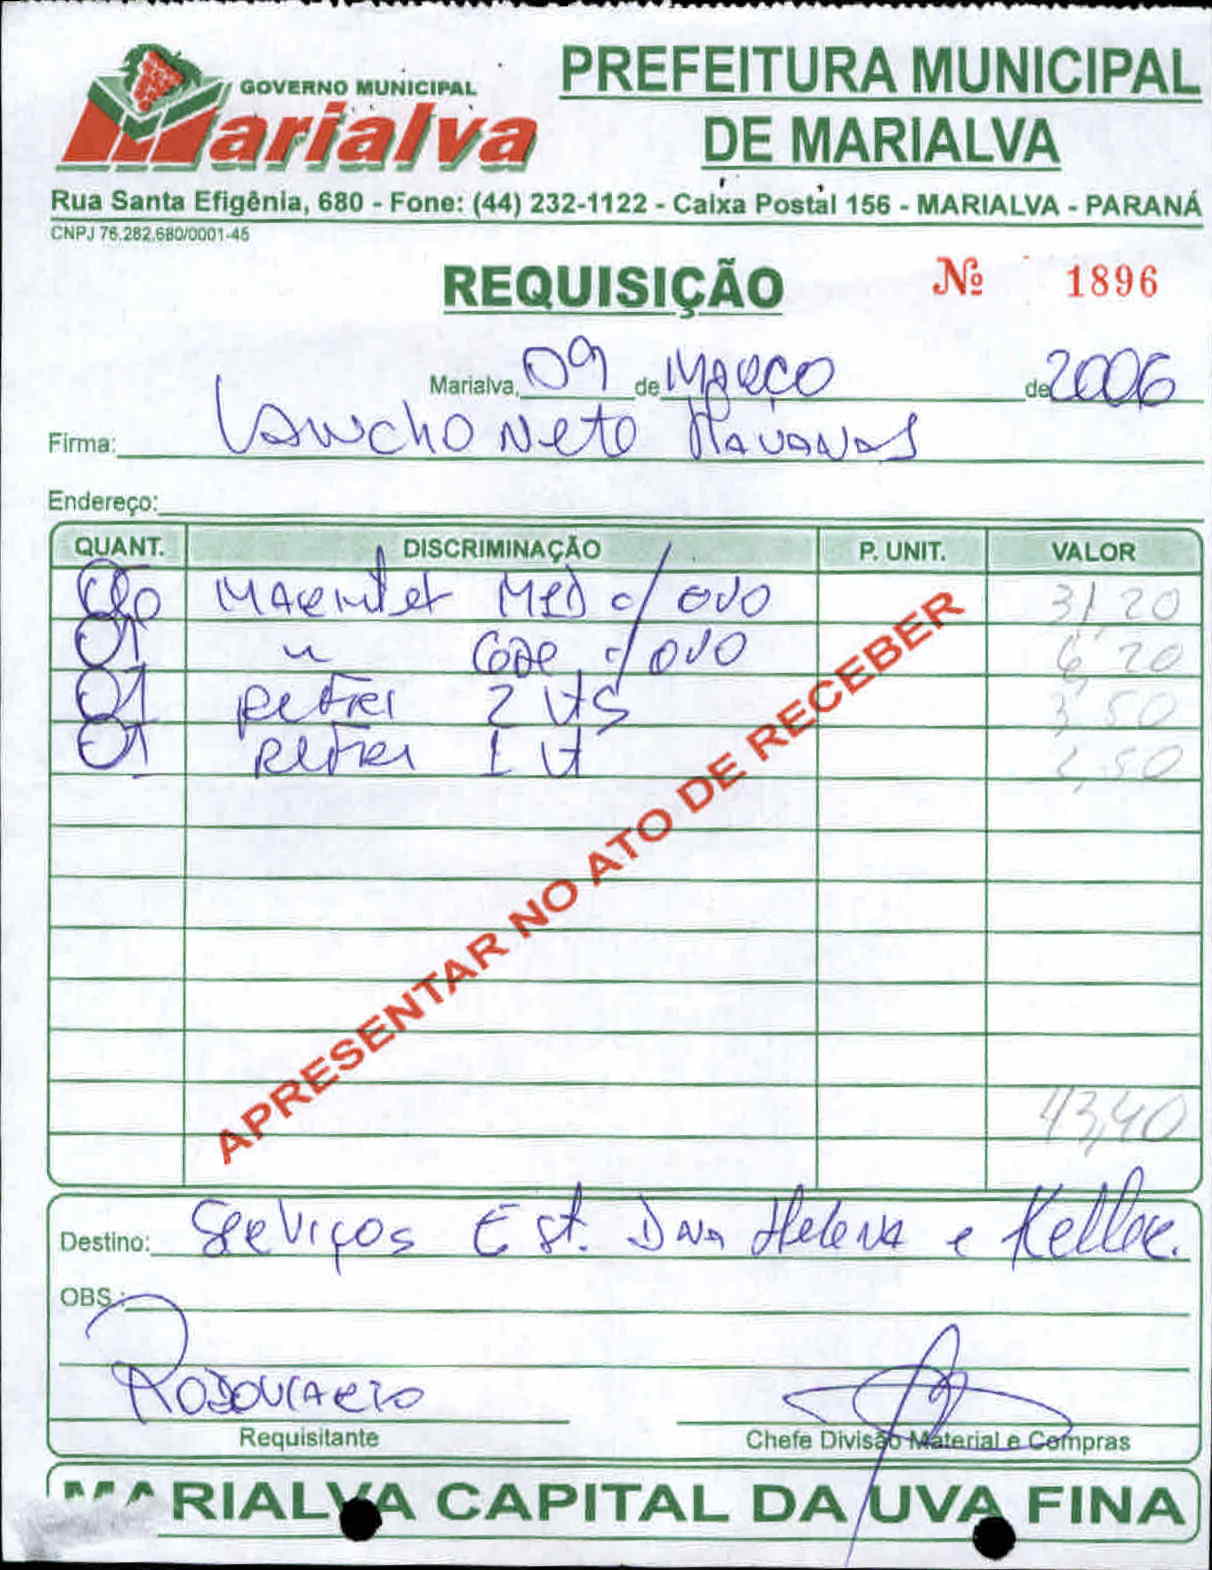 GOVERNO MUNICIPAL
Marialva
PREFEITURA MUNICIPAL
DE MARIALVA
Rua Santa Efigênia, 680 - Fone: (44) 232-1122 - Caixa Postal 156 - MARIALVA - PARANÁ
CNPJ 76.282.680/0001-45
REQUISIÇÃO Nº 1896
Marialva, 09 de MARÇO de 2006
Firma: LANCHONETE HAVANAS
Endereço:
QUANT. DISCRIMINAÇÃO P. UNIT. VALOR
MARMITEX MED c/ OVO 31,20
01 " c/ OVO 6,20
01 REFRI 2 LTS 3,50
01 REFRI 1 LT 2,50
APRESENTAR NO ATO DE RECEBER
43,40
Destino: Serviços Est. Dna Helena e Keller.
OBS.:
RODOVIARIO
Requisitante
Chefe Divisão Material e Compras
MARIALVA CAPITAL DA UVA FINA